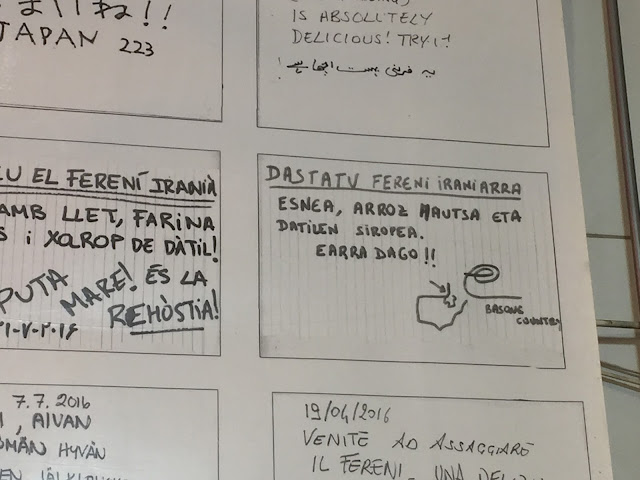 いね!!
JAPAN 223
IS ABSOLUTELY
DELICIOUS! TRY IT!
یہ فرینی بہت اچھا ہے!
EL FERENÍ IRANIÀ
AMB LLET, FARINA
I XAROP DE DÀTIL!
PUTA MARE! ÉS LA
REHÒSTIA!
۱-۷-۲۰۱۶
DASTATU FERENI IRANIARRA
ESNEA, ARROZ HAUTSA ETA
DATILEN SIROPEA.
EARRA DAGO!!
BASQUE
COUNTRY
7.7.2016
, AIVAN
HYVÄN
19/04/2016
VENITE AD ASSAGGIARE
IL FERENI, UNA